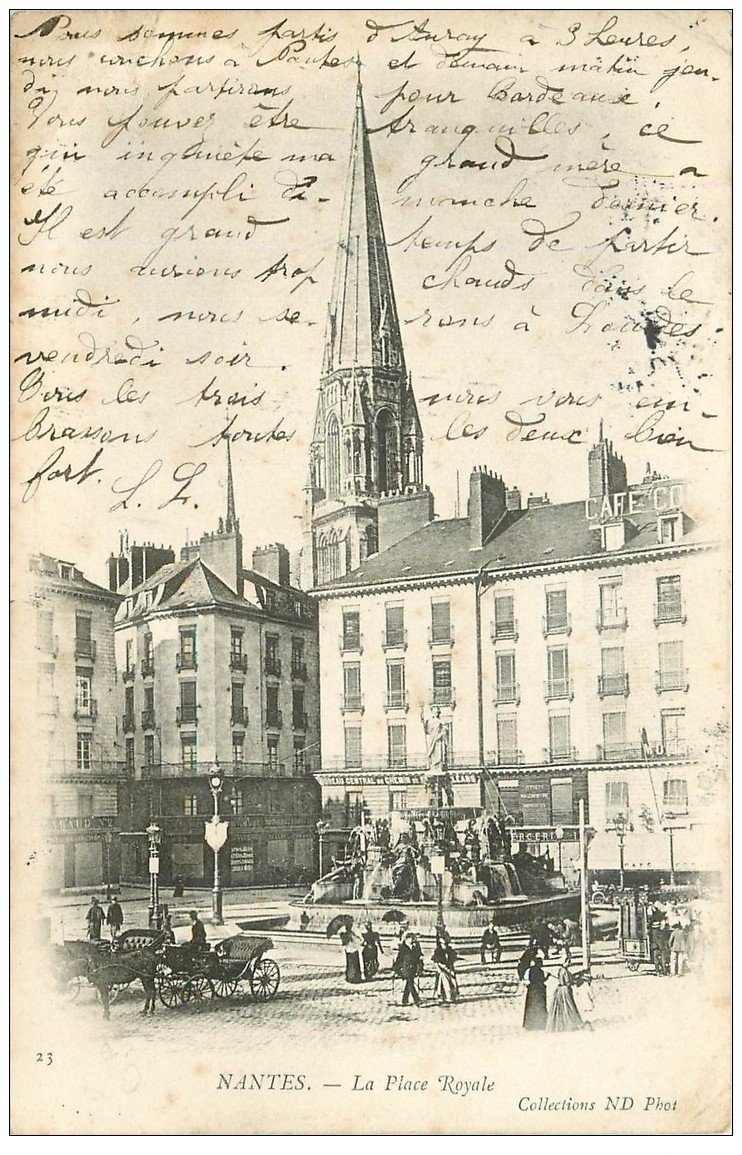 Nous sommes partis d'Auray à 3 heures,
nous couchons à Nantes et demain matin jeu-
di nous partirons pour Bordeaux.
Vous pouvez être tranquilles, ce
qui inquiète ma grand mère a
été accompli di- manche dernier.
Il est grand temps de partir
nous aurions trop chauds dans le
midi, nous se- rons à Lourdes
vendredi soir.
Tous les trois nous vous em-
brassons toutes les deux bien
fort. L. L.
CAFÉ
23
NANTES. — La Place Royale
Collections ND Phot